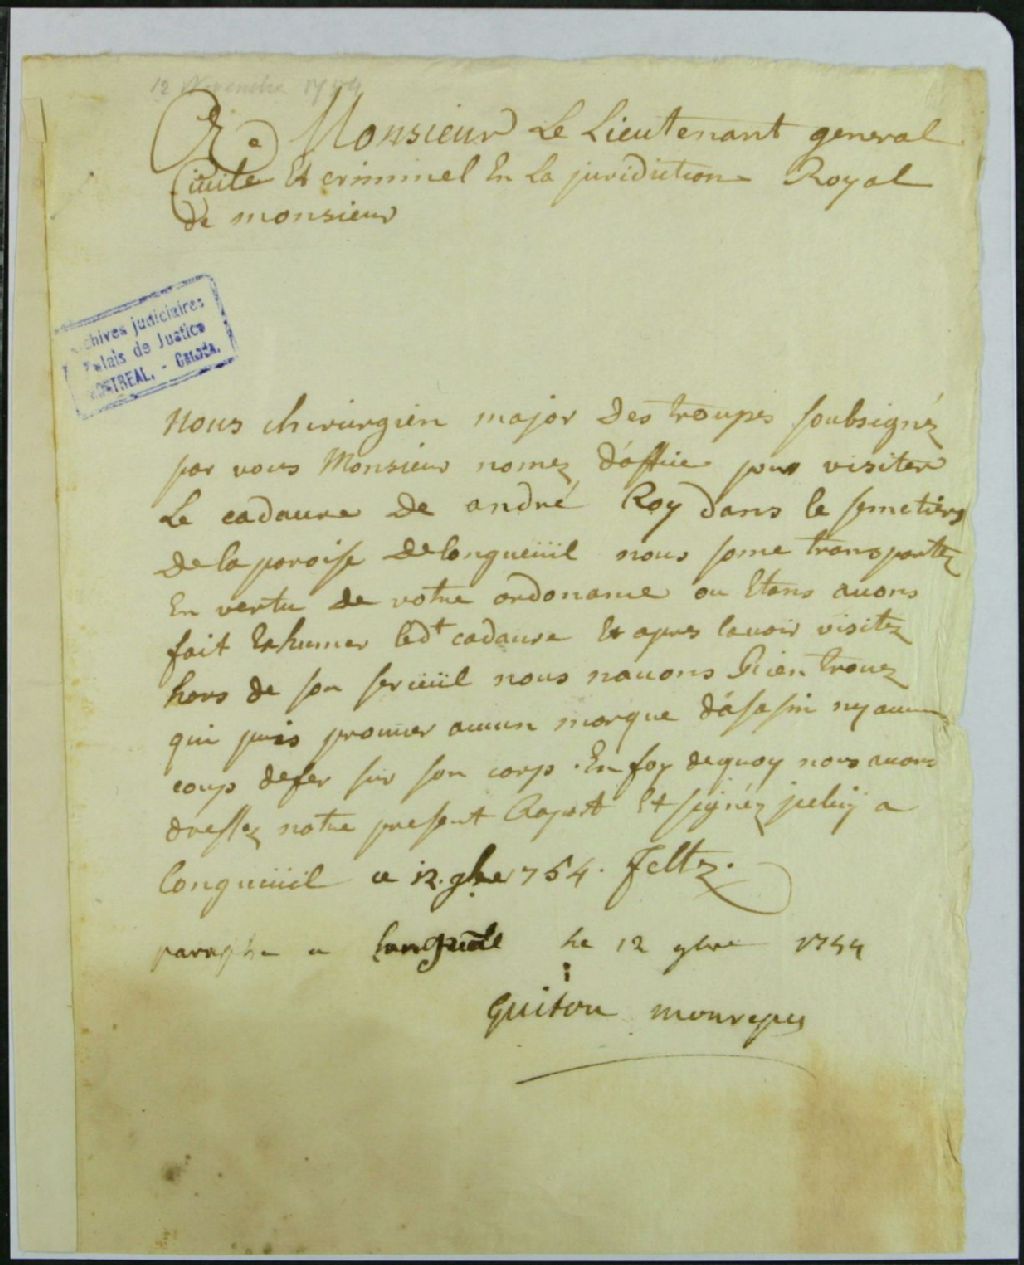 12 Novembre 1754
A Monsieur Le Lieutenant general
Civile Et criminel En La juridiction Royal
de monsieur
Archives judiciaires
Palais de Justice
MONTREAL. - Canada.
nous chirurgien major Des troupes soubsignéz
par vous Monsieur nomez d'office pour visiter
Le cadavre De andré Roy dans le semetiere
de la paroise De longueüil nous some transportez
En vertu de votre ordonance ou Etans avons
fait Exhumer led.t cadavre Et apres lavoir visitez
hors de son sercüeil nous navons Rien trouvez
qui puis prouver aucun marque d'asasin ny aucun
coup de fer sur son corp. En foy de quoy nous avons
dressez notre present Raport Et signéz jceluÿ a
Longueüil ce 12. gbre 754. Feltz.
paraphe a Longueüil le 12 gbre 1754
Guiton monrepos